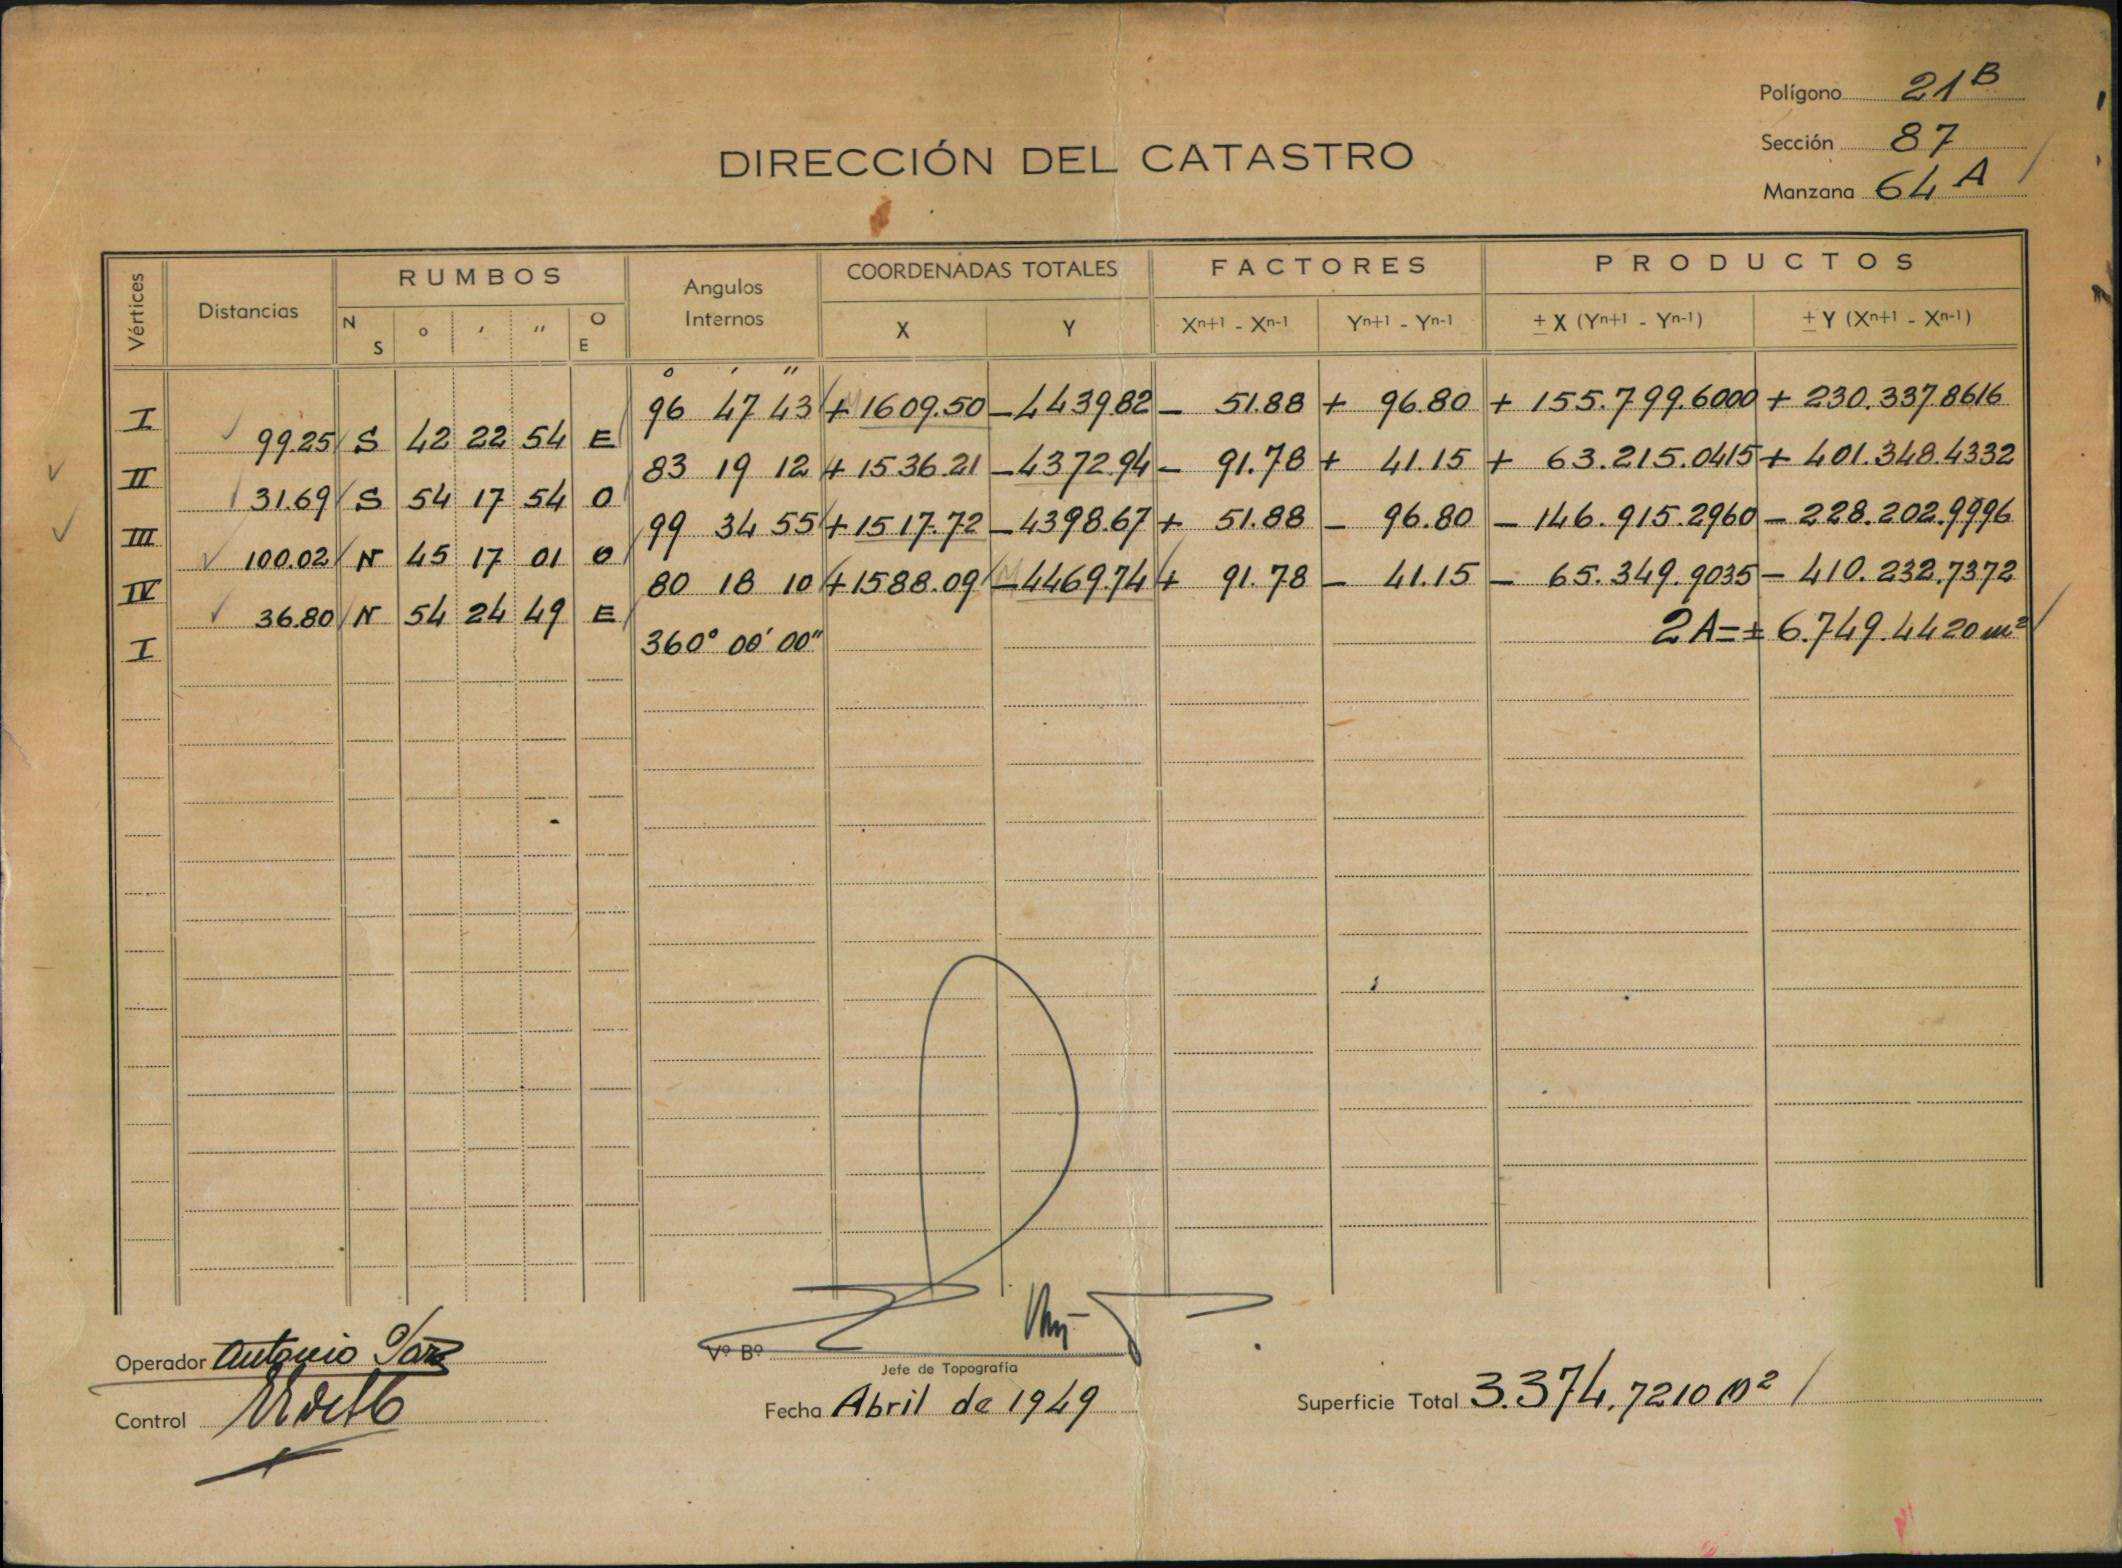 Polígono 21 B
Sección 87
Manzana 64 A
DIRECCIÓN DEL CATASTRO
Vértices Distancias RUMBOS Angulos Internos COORDENADAS TOTALES FACTORES PRODUCTOS
N S ° ' " O E X Y Xn+1 - Xn-1 Yn+1 - Yn-1 ± X (Yn+1 - Yn-1) ± Y (Xn+1 - Xn-1)
° ' "
I 96 47 43 + 1609.50 - 4439.82 - 51.88 + 96.80 + 155.799.6000 + 230.337.8616
99.25 S 42 22 54 E
II 83 19 12 + 1536.21 - 4372.94 - 91.78 + 41.15 + 63.215.0415 + 401.348.4332
31.69 S 54 17 54 O
III 99 34 55 + 1517.72 - 4398.67 + 51.88 - 96.80 - 146.915.2960 - 228.202.9996
100.02 N 45 17 01 O
IV 80 18 10 + 1588.09 - 4469.74 + 91.78 - 41.15 - 65.349.9035 - 410.232.7372
36.80 N 54 24 49 E
I 360° 00' 00" 2A = ± 6.749.4420 m²
Operador Antonio
Vº Bº
Jefe de Topografía
Control
Fecha Abril de 1949
Superficie Total 3.374.7210 m²